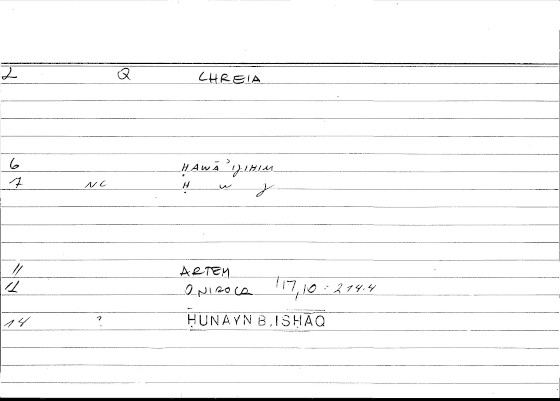 2 Q CHREIA
6 ḤAWĀʾIJIHIM
7 NC Ḥ w j
11 ARTEM
12 ONIROCR 117,10 : 214.4
14 ? ḤUNAYN B. ISḤĀQ